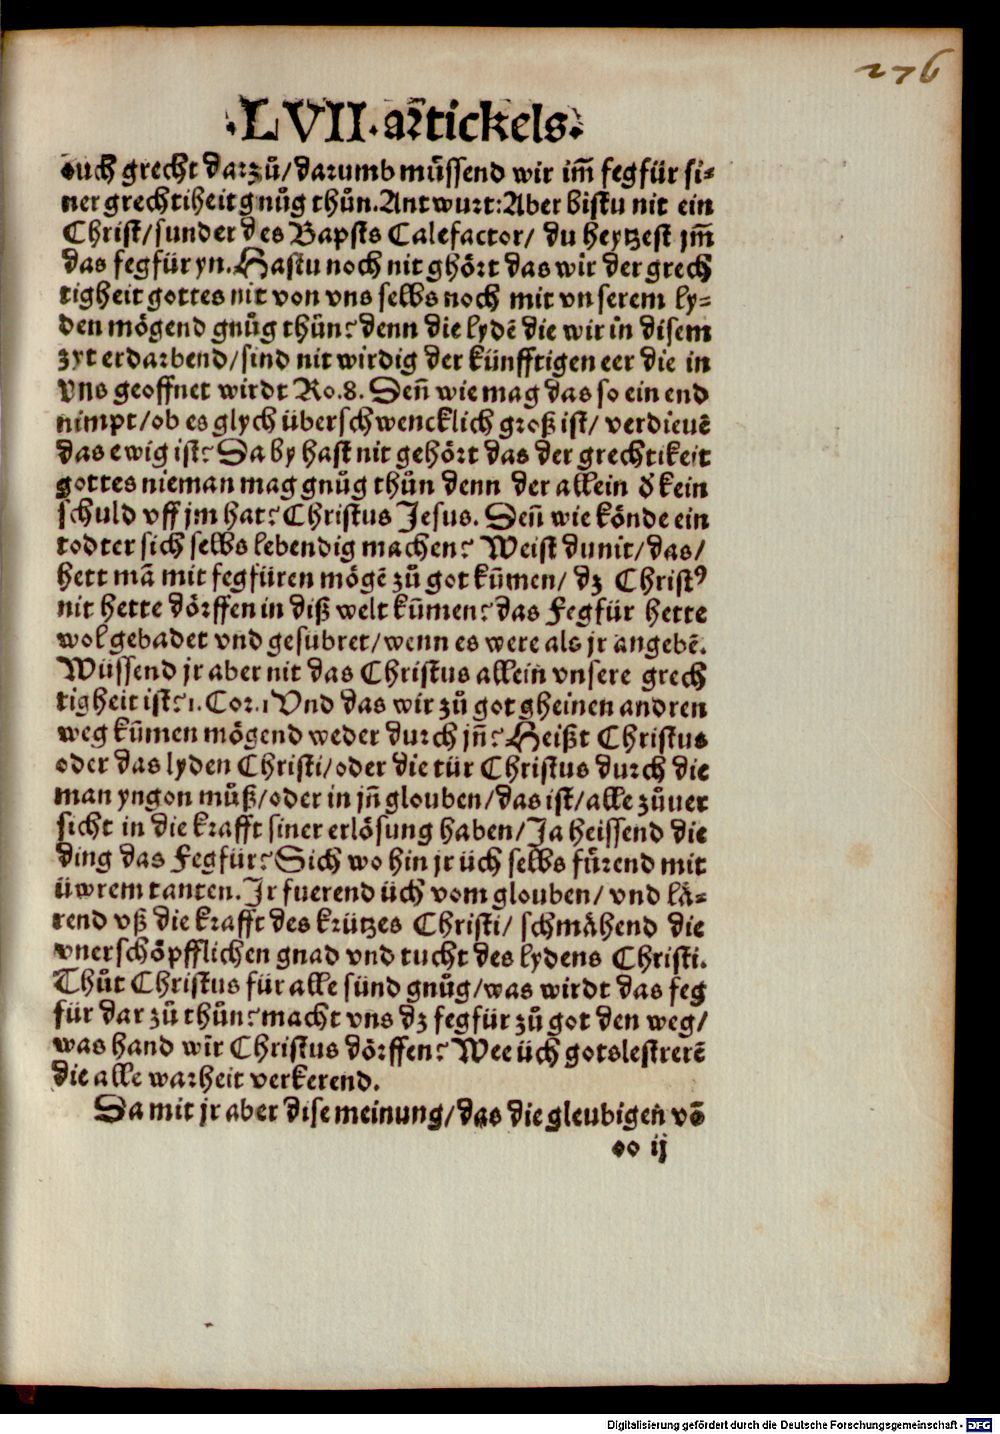 276
.LVII. artickels.
ouch grecht darzů/darumb müssend wir im̄ fegfür si⸗
ner grechtiheit gnůg thůn. Antwurt: Aber bistu nit ein
Christ/sunder des Bapsts Calefactor/ du heytzest jm̄
das fegfür yn. Hastu noch nit ghört das wir der grech
tigheit gottes nit von vns selbs noch mit vnserem ly⸗
den mögend gnůg thůn? denn die lydē die wir in disem
zyt erdarbend/sind nit wirdig der künfftigen eer die in
vns geoffnet wirdt Ro. 8. Deñ wie mag das so ein end
nimpt/ob es glych überschwencklich groß ist/ verdienē
das ewig ist? Da by hast nit gehört das der grechtikeit
gottes nieman mag gnůg thůn denn der allein d̓ kein
schuld vff jm hat? Christus Jesus. Deñ wie könde ein
todter sich selbs lebendig machen? Weist du nit/das/
hett mā mit fegfüren mögē zů got kum̄en/ dz Christꝰ
nit hette dörffen in diß welt kum̄en? das Fegfür hette
wol gebadet vnd gesubret/wenn es were als jr angebē.
Wüssend jr aber nit das Christus allein vnsere grech
tigheit ist? 1. Cor. 1 Vnd das wir zů got gheinen andren
weg kum̄en mögend weder durch jñ? Heißt Christus
oder das lyden Christi/oder die tür Christus durch die
man yngon můß/oder in jñ glouben/das ist/alle zůuer
sicht in die krafft siner erlösung haben/Ja heissend die
ding das Fegfür? Sich wo hin jr üch selbs fůrend mit
üwrem tanten. Jr fuerend üch vom glouben/ vnd lä⸗
rend vß die krafft des krützes Christi/ schmähend die
vnerschöpfflichen gnad vnd tucht des lydens Christi.
Thůt Christus für alle sünd gnůg/was wirdt das feg
für dar zů thůn? macht vns dz fegfür zů got den weg/
was hand wir Christus dörffen? Wee üch gotslestrerē
die alle warheit verkerend.
Da mit jr aber dise meinung/das die gleubigen vō
oo ij
Digitalisierung gefördert durch die Deutsche Forschungsgemeinschaft - DFG